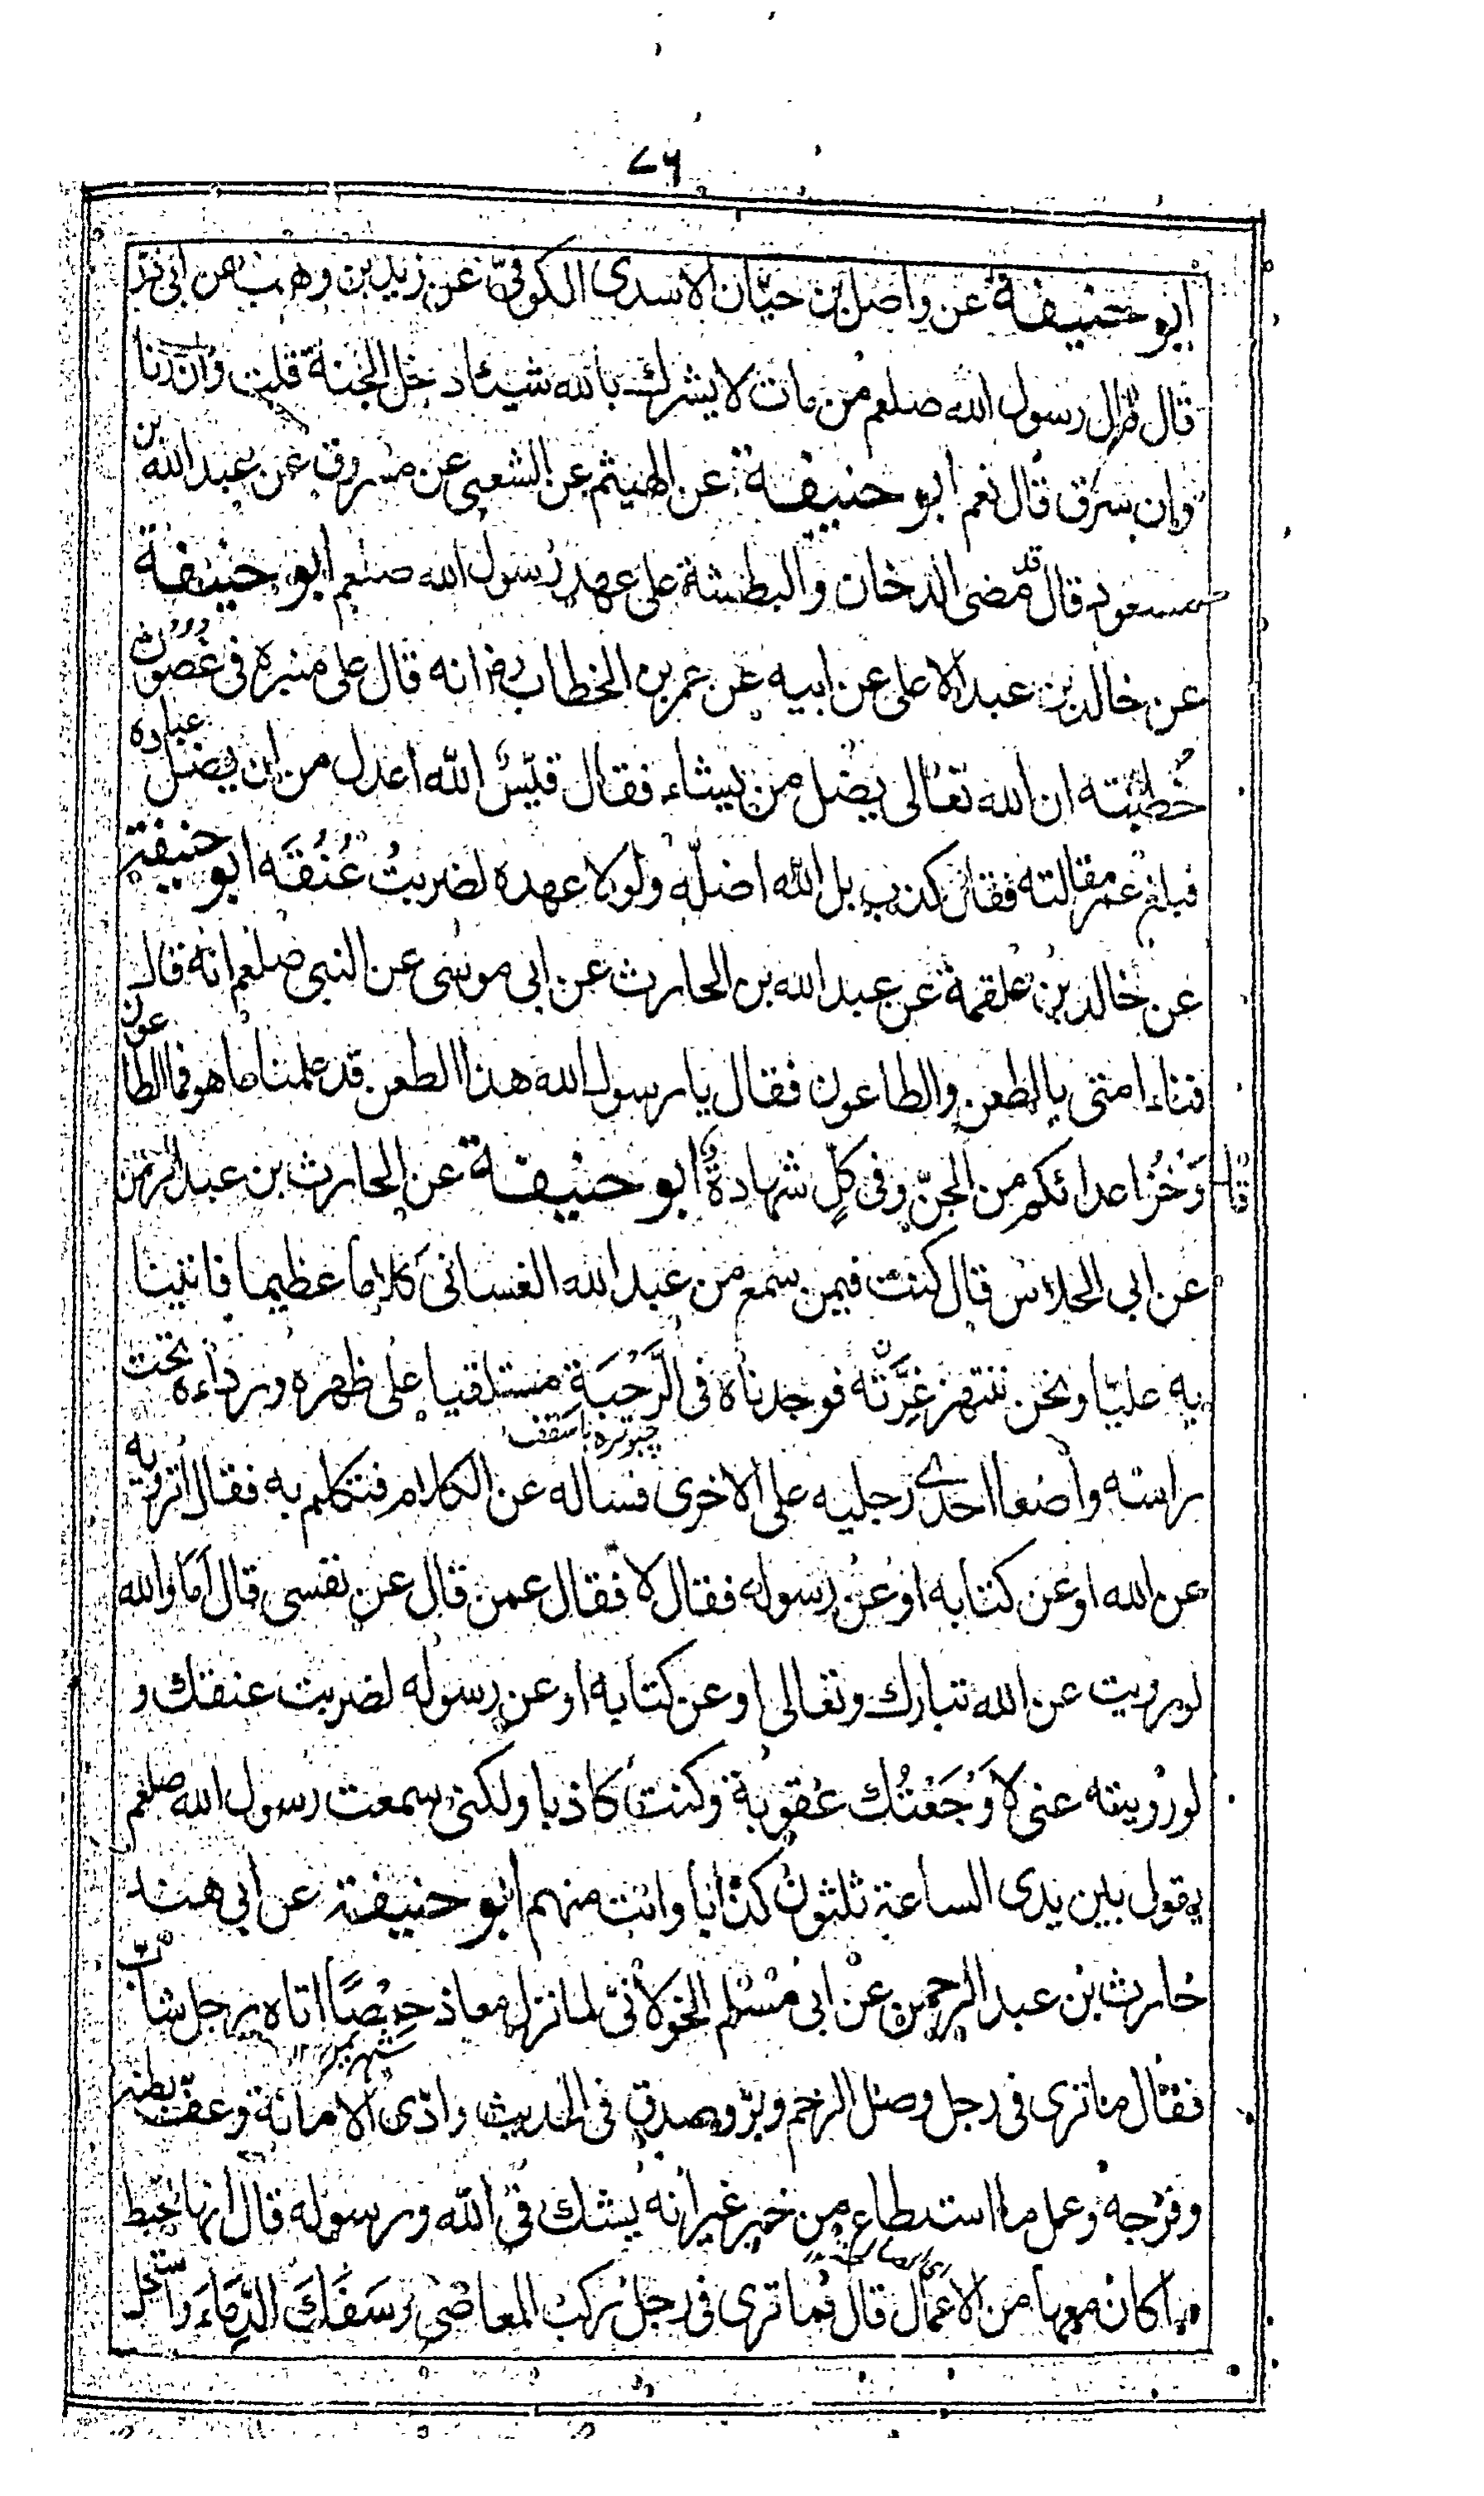 ٧٦
ابو حنيفة عن واصل بن حيّان الاسدى الكوفىّ عن زيد بن وهب عن ابى ذر
قال قال رسول الله صلعم من مات لا يشرك بالله شيئا دخل الجنة قلت وان زنا
وان سرق قال نعم ابو حنيفة عن الهيثم عن الشعبى عن مسروق عن عبد الله بن
مسعود قال قد مضى الدخان والبطشة على عهد رسول الله صلعم ابو حنيفة
عن خالد بن عبد الاعلى عن ابيه عن عمر بن الخطاب رض انه قال على منبره فى غصون
خُطبته ان الله تعالى يضل من يشاء فقال قسّ الله اعدل من ان يضل عباده
فبلغ عمر مقالته فقال كذب بل الله اضلّه ولولا عهده لضربتُ عُنُقَه ابو حنيفة
عن خالد بن علقمة عن عبد الله بن الحارث عن ابى موسى عن النبى صلعم انه قال
فناء امتى بالطعن والطاعون فقال يا رسول الله هذا الطعن قد علمنا ما هو فما الطاعون
قال وَخْزُ اعدائكم من الجنّ وفى كلٍ شهادةٌ ابو حنيفة عن الحارث بن عبد الرحمن
عن ابى الحلاس قال كنت فيمن سمع من عبد الله الغسانى كلاما عظيما فاتينا
به عليّا ونحن ننتهز غِرَّتَه فوجدناه فى الرَّحْبَةِ مستلقيا على ظهره ورداءه تحت
چبوتره باسقف
راسه واضعا احدى رجليه على الاخرى فساله عن الكلام فتكلم به فقال اترويه
عن الله او عن كتابه او عن رسوله فقال لا فقال عمن قال عن نفسى قال اَمَا والله
لو رويت عن الله تبارك وتعالى او عن كتابه او عن رسوله لضربت عنقك و
لو رويته عنى لاَوْجَعْتُك عقوبة وكنت كاذبا ولكنى سمعت رسول الله صلعم
يقول بين يدى الساعة ثلثون كذّابا وانت منهم ابو حنيفة عن ابى هند
حارث بن عبد الرحمن عن ابى مُسْلم الخولانىّ لما نزل معاذ حِمْصًا اتاه رجل شابّ
فقال ما ترى فى رجل وصل الرحم وبرّ وصدق فى الحديث وادّى الامانة وعفّ بطنه
وفرجه وعمل ما استطاع من خير غير انه يشك فى الله ورسوله قال انها تحبط
ما كان معها من الاعمال قال فما ترى فى رجل ركب المعاصى وسَفَكَ الدِّمَاءَ واستحل